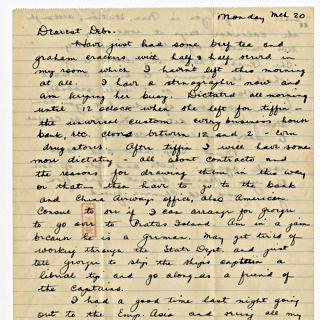 Monday Mch 20
Dearest Debs..
Have just had some beef tea and
graham crackers with half & half served in
my room which I havnt left this morning
at all. I have a stenographer now and
am keeping her busy. Dictated all morning
until 12 oclock when she left for tiffin -
the universal custom every business house
bank, etc. closes between 12 and 2 - even
drug stores. After tiffin I will have some
more dictating - all about contracts and
the reasons for drawing them in this way
or that - then have to go to the bank
and China Airways office, also American
Consul to see if I can arrange for Georges
to go over to Pratas Island. Am in a jam
because he is a German. May get tired of
working through the State Dept. and just
tell Georges to slip the ships captain a
liberal tip and go along as a friend of
the Captains.
I had a good time last night going
out to the Emp. Asia and seeing all my